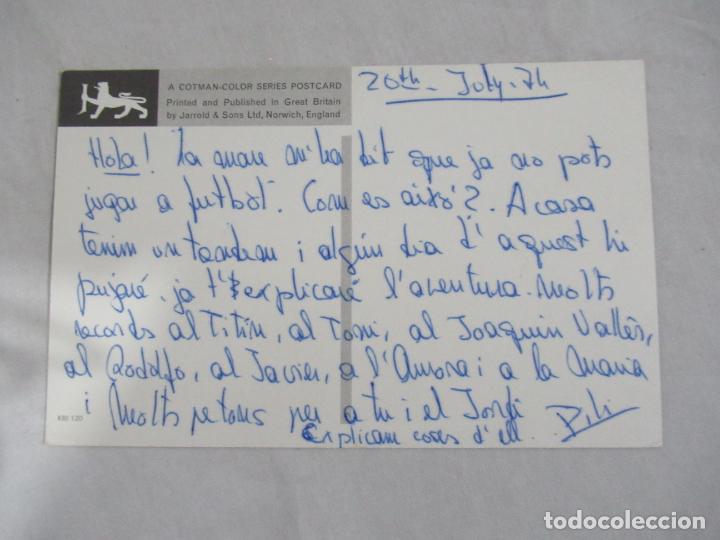 A COTMAN-COLOR SERIES POSTCARD
Printed and Published in Great Britain
by Jarrold & Sons Ltd, Norwich, England
20th - July - 74
Hola! La mare m'ha dit que ja no pots
jugar a futbòl. Com es això?. A casa
tenim un tandem i algún dia d'aquest hi
pujaré. ja t'explicaré l'aventura. Molts
records al Titín, al Toni, al Joaquin Vallès,
al Rodolfo, al Javier, a l'Amora i a la Maria
i Molts petons per a tu i el Jordi
Explicam coses d'ell.. Pili
KBI 120
todocoleccion